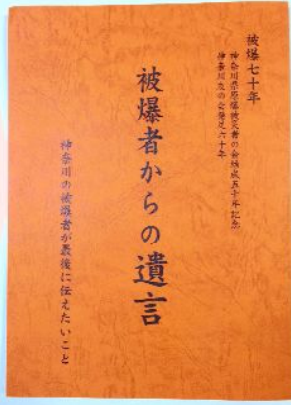 被爆七十年
神奈川県原爆被災者の会結成五十年記念
神奈川友の会発足六十年
被爆者からの遺言
神奈川の被爆者が最後に伝えたいこと